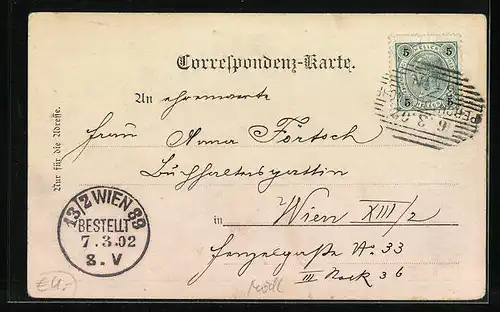 5 5
Correspondenz-Karte.
Nur für die Adresse.
An ehrenwerte
Frau Anna Förtsch
Buchhaltersgattin
in Wien XIII/2
No 33
III Stock 36
13/2 WIEN 89
BESTELLT
7.3.02
8.V
6.3.02
€4.-